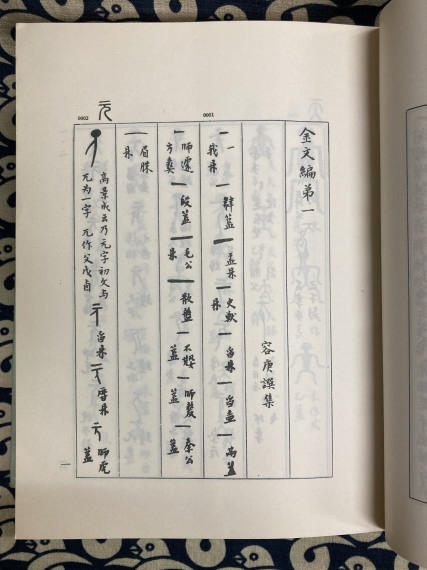 金文編第一
容庚譔集
0001
一
一 我鼎 一 盂鼎 一 舀鼎 一 舀壺
一 師遽方彝 一 段簋 一 毛公鼎 一 散盤 一 不𡢁簋 一 師𩛥簋 一 秦公簋
一 眉脒鼎
0002
元
高景成云乃元字初文与兀为一字 兀作父戊卣 元 舀鼎 元 元 師虎簋
一